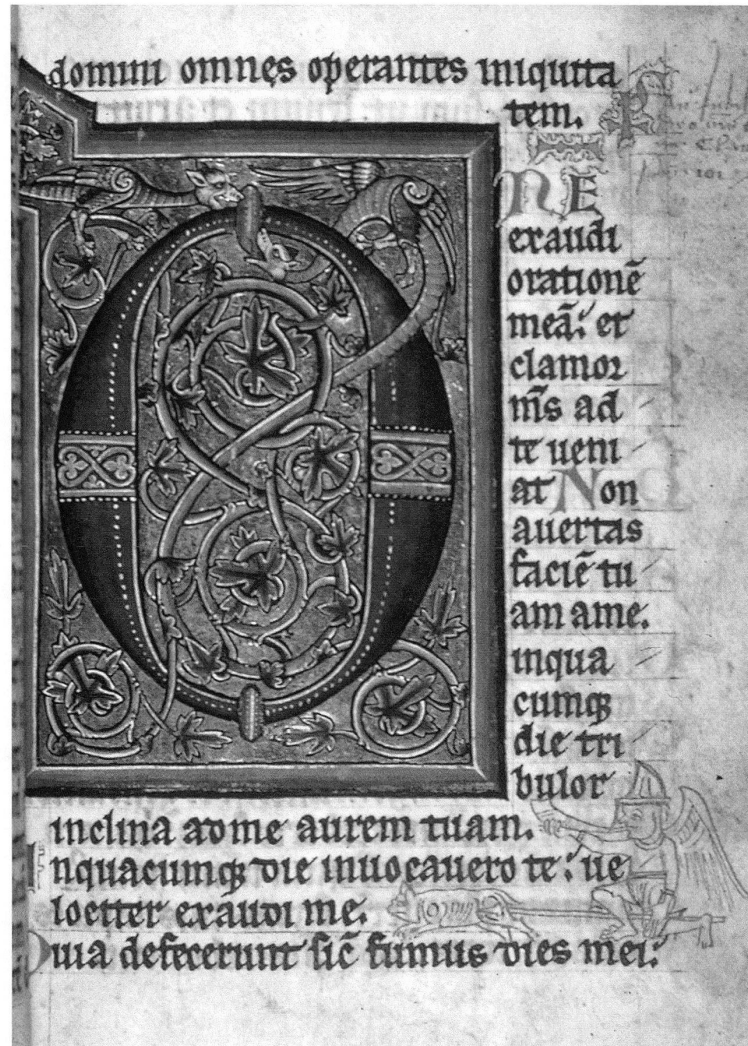 domini omnes operantes iniquita
tem.
NE
exaudi
orationē
meā: et
clamor
m̄s ad
te ueni
at Non
auertas
faciē tu
am a me.
inqua
cumq;
die tri
bulor
inclina ad me aurem tuam.
Inquacumq; die inuocauero te: ue
lociter exaudi me.
Quia defecerunt sic̄ fumus dies mei.